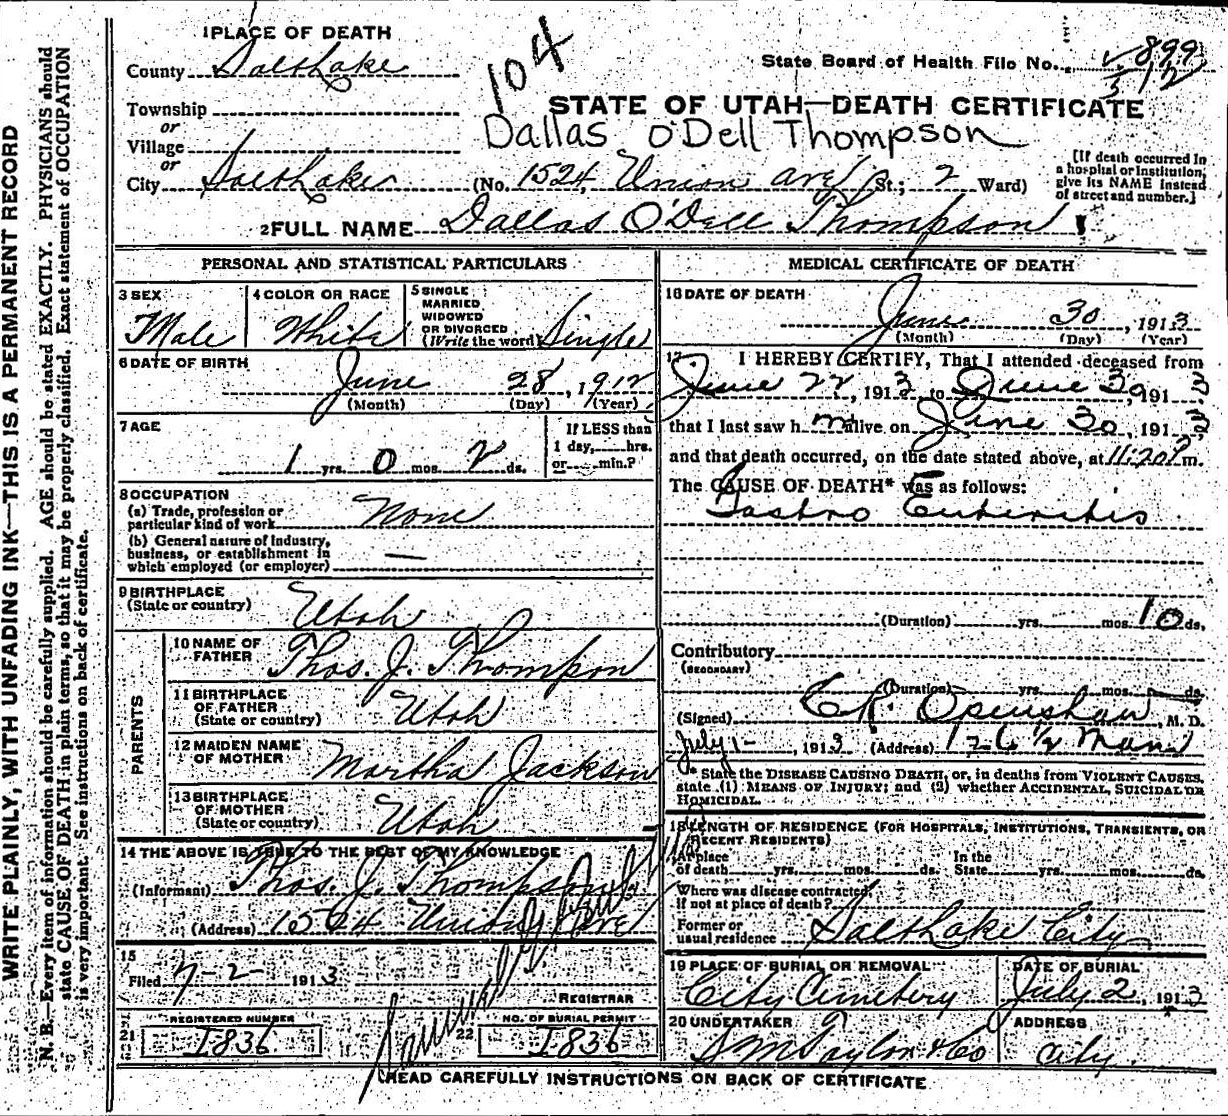 1 PLACE OF DEATH
County Salt Lake
Township
or
Village
or
City Salt Lake (No. 1524 Union ave St.; 2 Ward)
104
State Board of Health File No. 899
512
STATE OF UTAH—DEATH CERTIFICATE
Dallas O'Dell Thompson
[If death occurred in
a hospital or institution,
give its NAME instead
of street and number.]
2 FULL NAME Dallas O'Dell Thompson
WRITE PLAINLY, WITH UNFADING INK—THIS IS A PERMANENT RECORD
N. B.—Every item of information should be carefully supplied. AGE should be stated EXACTLY. PHYSICIANS should
state CAUSE OF DEATH in plain terms, so that it may be properly classified. Exact statement of OCCUPATION
is very important. See instructions on back of certificate.
PERSONAL AND STATISTICAL PARTICULARS
3 SEX
Male
4 COLOR OR RACE
White
5 SINGLE
MARRIED
WIDOWED
OR DIVORCED
(Write the word) Single
6 DATE OF BIRTH
June 28, 1912
(Month) (Day) (Year)
7 AGE
1 yrs. 0 mos. 2 ds.
If LESS than
1 day, hrs.
or min.?
8 OCCUPATION
(a) Trade, profession or
particular kind of work None
(b) General nature of industry,
business, or establishment in
which employed (or employer) —
9 BIRTHPLACE
(State or country) Utah
PARENTS
10 NAME OF
FATHER Thos. J. Thompson
11 BIRTHPLACE
OF FATHER
(State or country) Utah
12 MAIDEN NAME
OF MOTHER Martha Jackson
13 BIRTHPLACE
OF MOTHER
(State or country) Utah
14 THE ABOVE IS TRUE TO THE BEST OF MY KNOWLEDGE
(Informant) Thos. J. Thompson
(Address) 1524 Union Ave
15
Filed 7-2 1913
REGISTRAR
21 REGISTERED NUMBER
I836
22 NO. OF BURIAL PERMIT
I836
MEDICAL CERTIFICATE OF DEATH
16 DATE OF DEATH
June 30, 1913
(Month) (Day) (Year)
17 I HEREBY CERTIFY, That I attended deceased from
June 22, 1913 to June 30, 1913
that I last saw h m alive on June 30, 1913
and that death occurred, on the date stated above, at 11:20 P m.
The CAUSE OF DEATH* was as follows:
Gastro Enteritis
(Duration) yrs. mos. 10 ds.
Contributory
(SECONDARY)
(Duration) yrs. mos. ds.
(Signed) C. R. Openshaw, M. D.
July 1-, 1913 (Address) 126 1/2 Main
* State the DISEASE CAUSING DEATH, or, in deaths from VIOLENT CAUSES,
state (1) MEANS OF INJURY; and (2) whether ACCIDENTAL, SUICIDAL OR
HOMICIDAL.
18 LENGTH OF RESIDENCE (FOR HOSPITALS, INSTITUTIONS, TRANSIENTS, OR
RECENT RESIDENTS)
At place
of death yrs. mos. ds.
In the
State yrs. mos. ds.
Where was disease contracted,
if not at place of death?
Former or
usual residence Salt Lake City
19 PLACE OF BURIAL OR REMOVAL
City Cemetery
DATE OF BURIAL
July 2, 1913
20 UNDERTAKER
S M Taylor & Co
ADDRESS
City.
READ CAREFULLY INSTRUCTIONS ON BACK OF CERTIFICATE